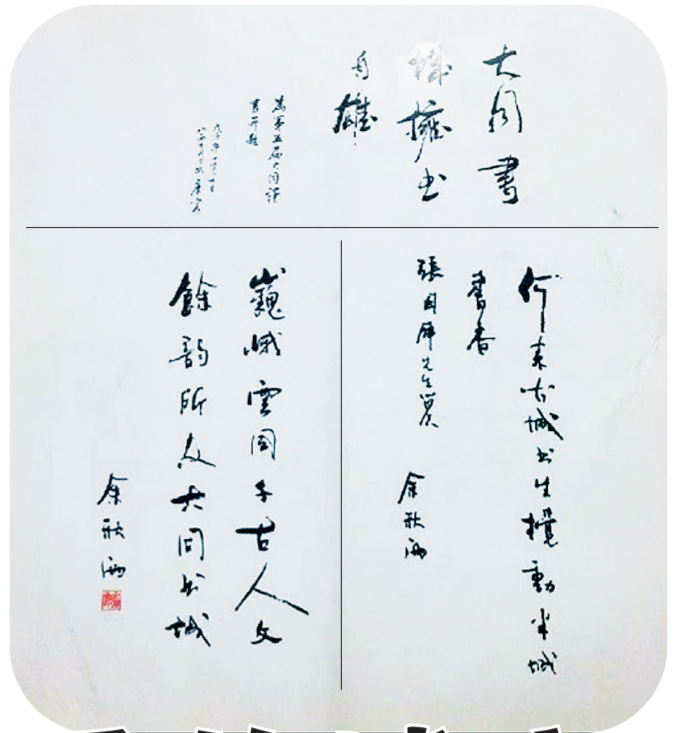 大同書
城擁书
自雄
為第五届大同讀
書节题
何来古城书生攪動半城
書香
張國屏先生囑
余秋雨
巍峨雲岡千古人文
餘韵所及大同书城
余秋雨